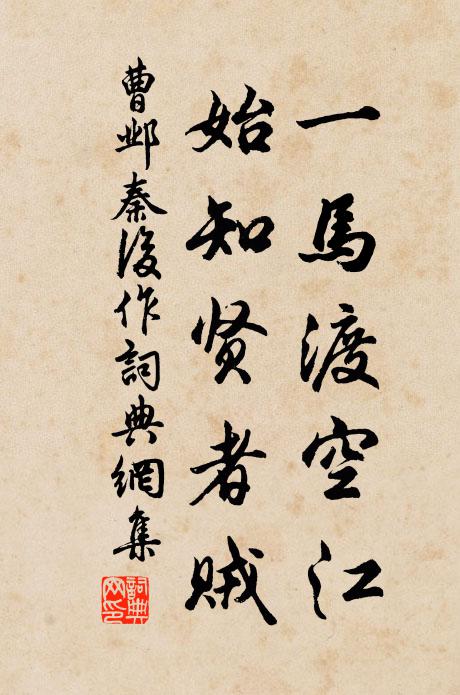 一馬渡空江
始知贤者贼
曹邺秦後作詞典網集
詞典網印